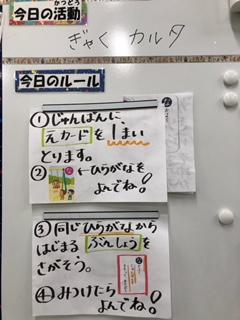 今日の活動
かつどう
ぎゃくカルタ
今日のルール
①じゅんばんに、
えカードを1まい
とります。
②←ひらがなを
よんでね!
③同じひらがなから
はじまるぶんしょうを
さがそう。
④みつけたら
よんでね!